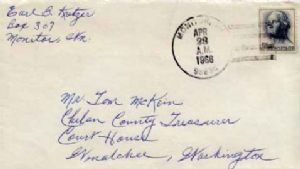 Earl B. Kreger
Box 307
Monitor, Wn.
APR
28
A.M.
1966
Mr Tom McKein
Chelan County Treasurer
Court House
Wenatchee, Washington